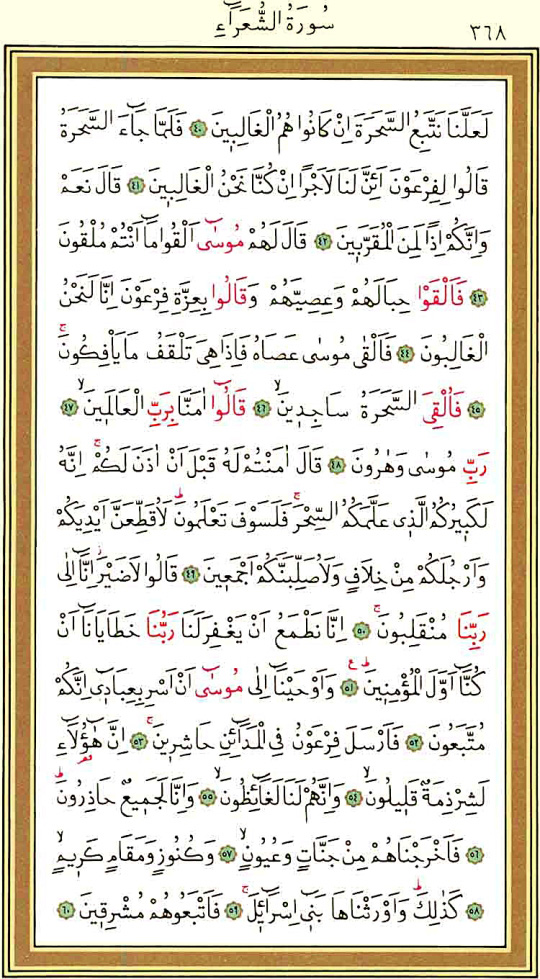 سُورَةُ الشُّعَرَاءِ ٣٦٨
لَعَلَّنَا نَتَّبِعُ السَّحَرَةَ اِنْ كَانُوا هُمُ الْغَالِبِينَ ﴿٤٠﴾ فَلَمَّا جَاءَ السَّحَرَةُ
قَالُوا لِفِرْعَوْنَ اَئِنَّ لَنَا لَاَجْرًا اِنْ كُنَّا نَحْنُ الْغَالِبِينَ ﴿٤١﴾ قَالَ نَعَمْ
وَاِنَّكُمْ اِذًا لَمِنَ الْمُقَرَّبِينَ ﴿٤٢﴾ قَالَ لَهُمْ مُوسٰى اَلْقُوا مَا اَنْتُمْ مُلْقُونَ
﴿٤٣﴾ فَاَلْقَوْا حِبَالَهُمْ وَعِصِيَّهُمْ وَقَالُوا بِعِزَّةِ فِرْعَوْنَ اِنَّا لَنَحْنُ
الْغَالِبُونَ ﴿٤٤﴾ فَاَلْقٰى مُوسٰى عَصَاهُ فَاِذَا هِىَ تَلْقَفُ مَا يَاْفِكُونَ
﴿٤٥﴾ فَاُلْقِىَ السَّحَرَةُ سَاجِدِينَ ﴿٤٦﴾ قَالُوا اٰمَنَّا بِرَبِّ الْعَالَمِينَ ﴿٤٧﴾
رَبِّ مُوسٰى وَهٰرُونَ ﴿٤٨﴾ قَالَ اٰمَنْتُمْ لَهُ قَبْلَ اَنْ اٰذَنَ لَكُمْ اِنَّهُ
لَكَبِيرُكُمُ الَّذِى عَلَّمَكُمُ السِّحْرَ فَلَسَوْفَ تَعْلَمُونَ لَاُقَطِّعَنَّ اَيْدِيَكُمْ
وَاَرْجُلَكُمْ مِنْ خِلَافٍ وَلَاُصَلِّبَنَّكُمْ اَجْمَعِينَ ﴿٤٩﴾ قَالُوا لَا ضَيْرَ اِنَّا اِلٰى
رَبِّنَا مُنْقَلِبُونَ ﴿٥٠﴾ اِنَّا نَطْمَعُ اَنْ يَغْفِرَ لَنَا رَبُّنَا خَطَايَانَا اَنْ
كُنَّا اَوَّلَ الْمُؤْمِنِينَ ﴿٥١﴾ وَاَوْحَيْنَا اِلٰى مُوسٰى اَنْ اَسْرِ بِعِبَادِى اِنَّكُمْ
مُتَّبَعُونَ ﴿٥٢﴾ فَاَرْسَلَ فِرْعَوْنُ فِى الْمَدَائِنِ حَاشِرِينَ ﴿٥٣﴾ اِنَّ هٰؤُلَاءِ
لَشِرْذِمَةٌ قَلِيلُونَ ﴿٥٤﴾ وَاِنَّهُمْ لَنَا لَغَائِظُونَ ﴿٥٥﴾ وَاِنَّا لَجَمِيعٌ حَاذِرُونَ
﴿٥٦﴾ فَاَخْرَجْنَاهُمْ مِنْ جَنَّاتٍ وَعُيُونٍ ﴿٥٧﴾ وَكُنُوزٍ وَمَقَامٍ كَرِيمٍ
﴿٥٨﴾ كَذٰلِكَ وَاَوْرَثْنَاهَا بَنِى اِسْرَائِلَ ﴿٥٩﴾ فَاَتْبَعُوهُمْ مُشْرِقِينَ ﴿٦٠﴾